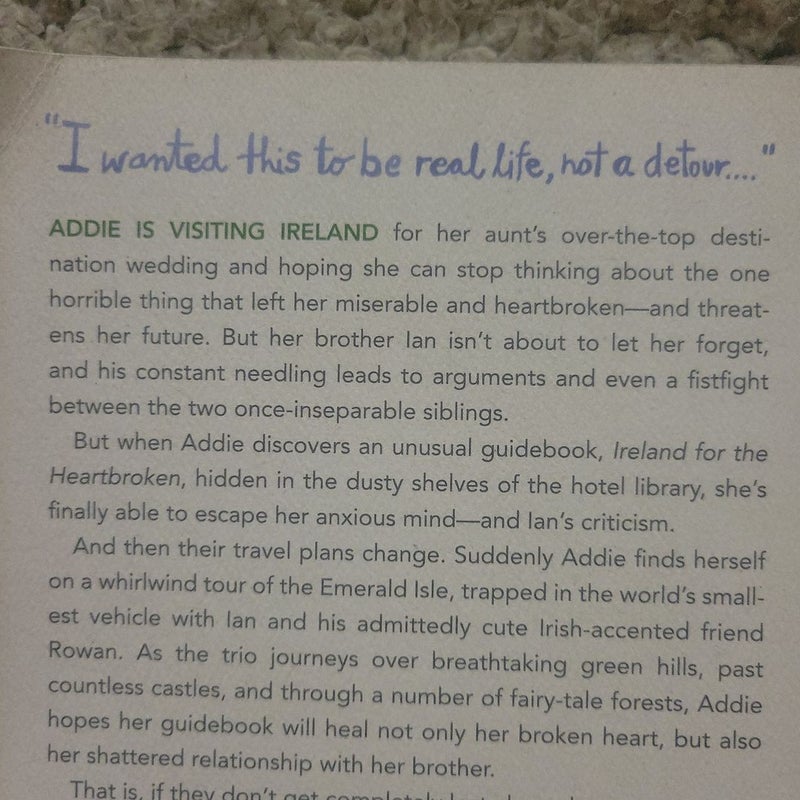 "I wanted this to be real life, not a detour...."
ADDIE IS VISITING IRELAND for her aunt's over-the-top desti-
nation wedding and hoping she can stop thinking about the one
horrible thing that left her miserable and heartbroken—and threat-
ens her future. But her brother Ian isn't about to let her forget,
and his constant needling leads to arguments and even a fistfight
between the two once-inseparable siblings.
But when Addie discovers an unusual guidebook, Ireland for the
Heartbroken, hidden in the dusty shelves of the hotel library, she's
finally able to escape her anxious mind—and Ian's criticism.
And then their travel plans change. Suddenly Addie finds herself
on a whirlwind tour of the Emerald Isle, trapped in the world's small-
est vehicle with Ian and his admittedly cute Irish-accented friend
Rowan. As the trio journeys over breathtaking green hills, past
countless castles, and through a number of fairy-tale forests, Addie
hopes her guidebook will heal not only her broken heart, but also
her shattered relationship with her brother.
That is, if they don't get completely